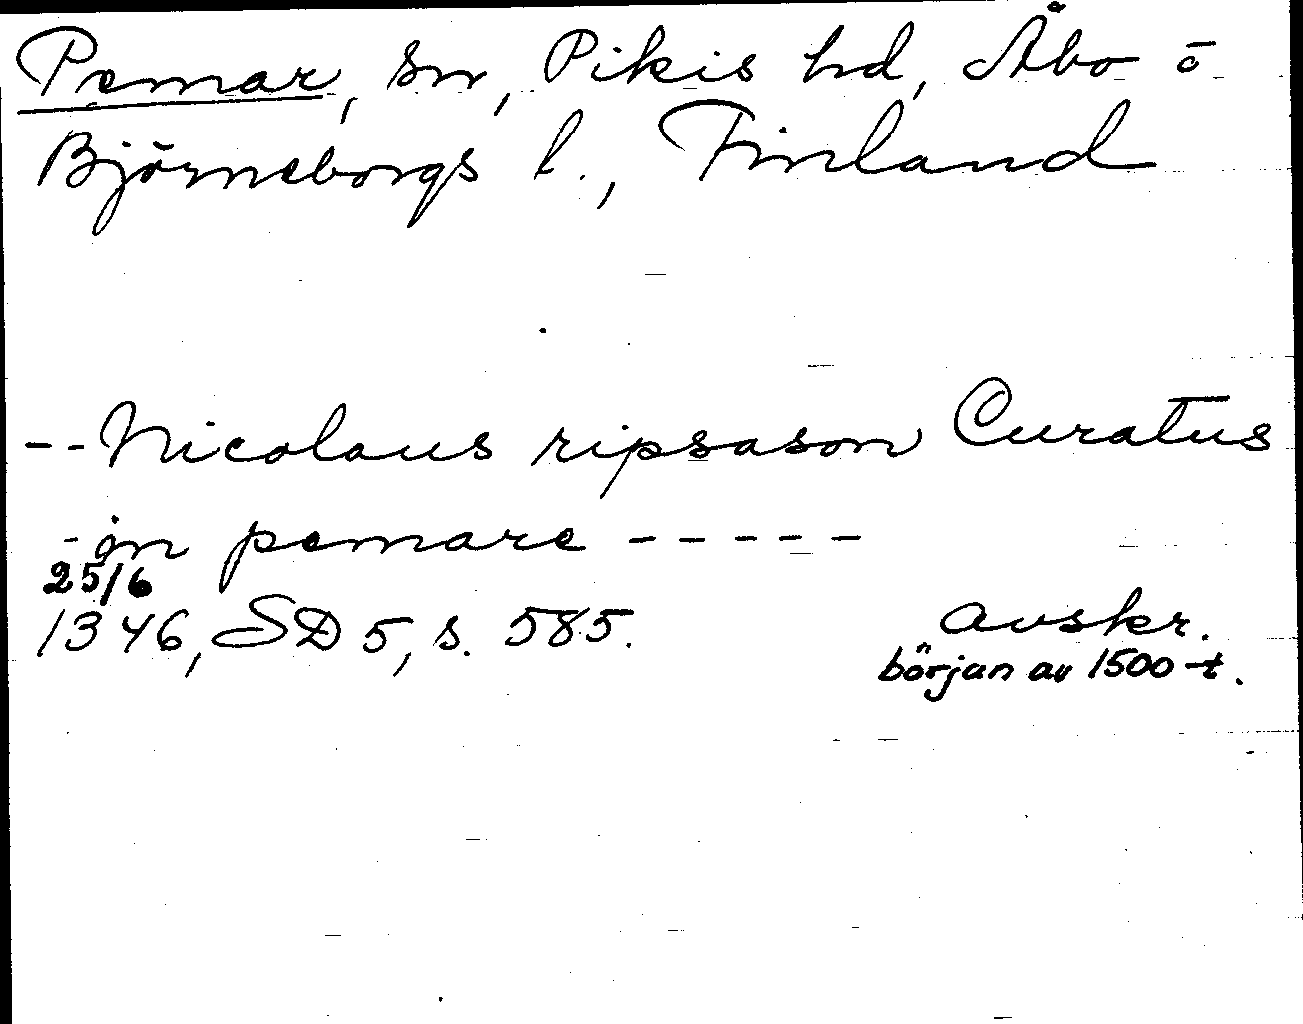 Pemar, sn, Pikis hd, Åbo o
Björneborgs l., Finland
-- Nicolaus ripsason Curatus
- in pemare -----
25/6
1346, SD 5, s. 585.
avskr.
början av 1500-t.